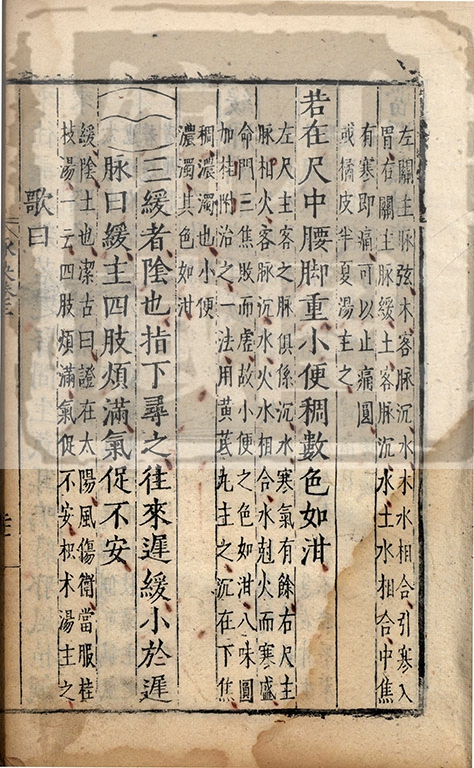 左關主脉弦木客脉沉水木水相合引寒入
胃右關主脉緩土客脉沉水土水相合中焦
有寒即痛可以止痛圓
或橘皮半夏湯主之
若在尺中腰脚重小便稠數色如泔
左尺主客之脉俱係沉水寒氣有餘右尺主
脉相火客脉沉水火水相合水尅火而寒盛
命門三焦敗而虛故小便之色如泔八味圓
加桂附治之一法用黃芪丸主之沉在下焦
稠濃濁也小便
濃濁其色如泔
三緩者陰也指下尋之往來遲緩小於遲
脉曰緩主四肢煩滿氣促不安
緩陰土也潔古曰證在太陽風傷衛當服桂
枝湯一云四肢煩滿氣促不安枳术湯主之
歌曰